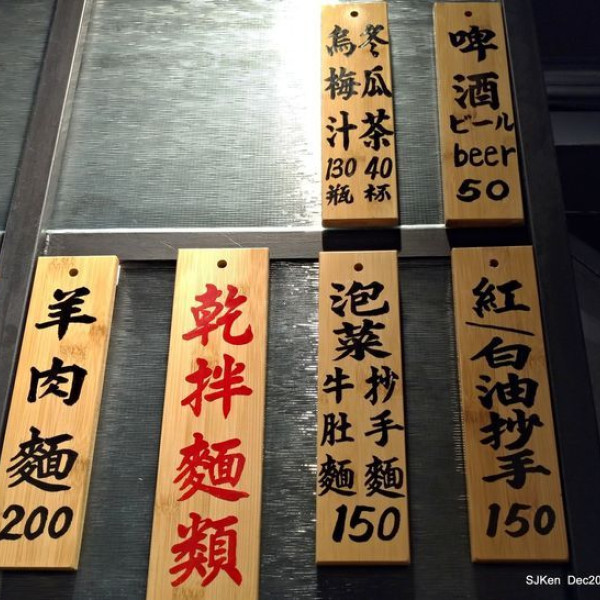 冬瓜茶 40 杯
烏梅汁 130 瓶
啤酒
ビール
beer
50
羊肉麵
200
乾拌麵類
泡菜
抄手麵
牛肚麵
150
紅/白油抄手
150
SJKen Dec20